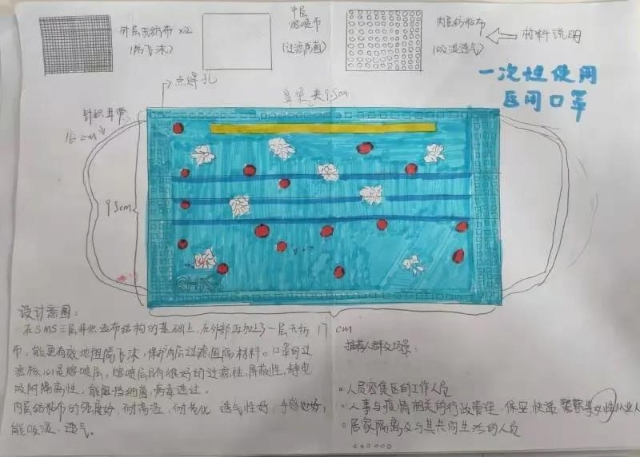 外层无纺布 x2
(防飞沫)
中层
熔喷布
(过滤病菌)
内层无纺布
(吸湿透气)
材料说明
一次性使用
医用口罩
点焊孔
鼻梁夹9.5cm
针织耳带
9.5cm
17 cm
设计意图:
在SMS三层非织造布结构的基础上,在外部再加了一层无纺
布,能更有效地阻隔飞沫,保护内层过滤阻隔材料。口罩的过
滤核心是熔喷层,熔喷层有很好的过滤性、屏蔽性、静电
吸附隔离性,能阻挡细菌、病毒透过。
内层无纺布的强度好,耐高温,耐老化,透气性好,
能吸湿、透气。
推荐人群及场景:
人员密集区的工作人员
从事与疫情相关的行政管理、保安、快递 从业人
居家隔离及与其共同生活的人员